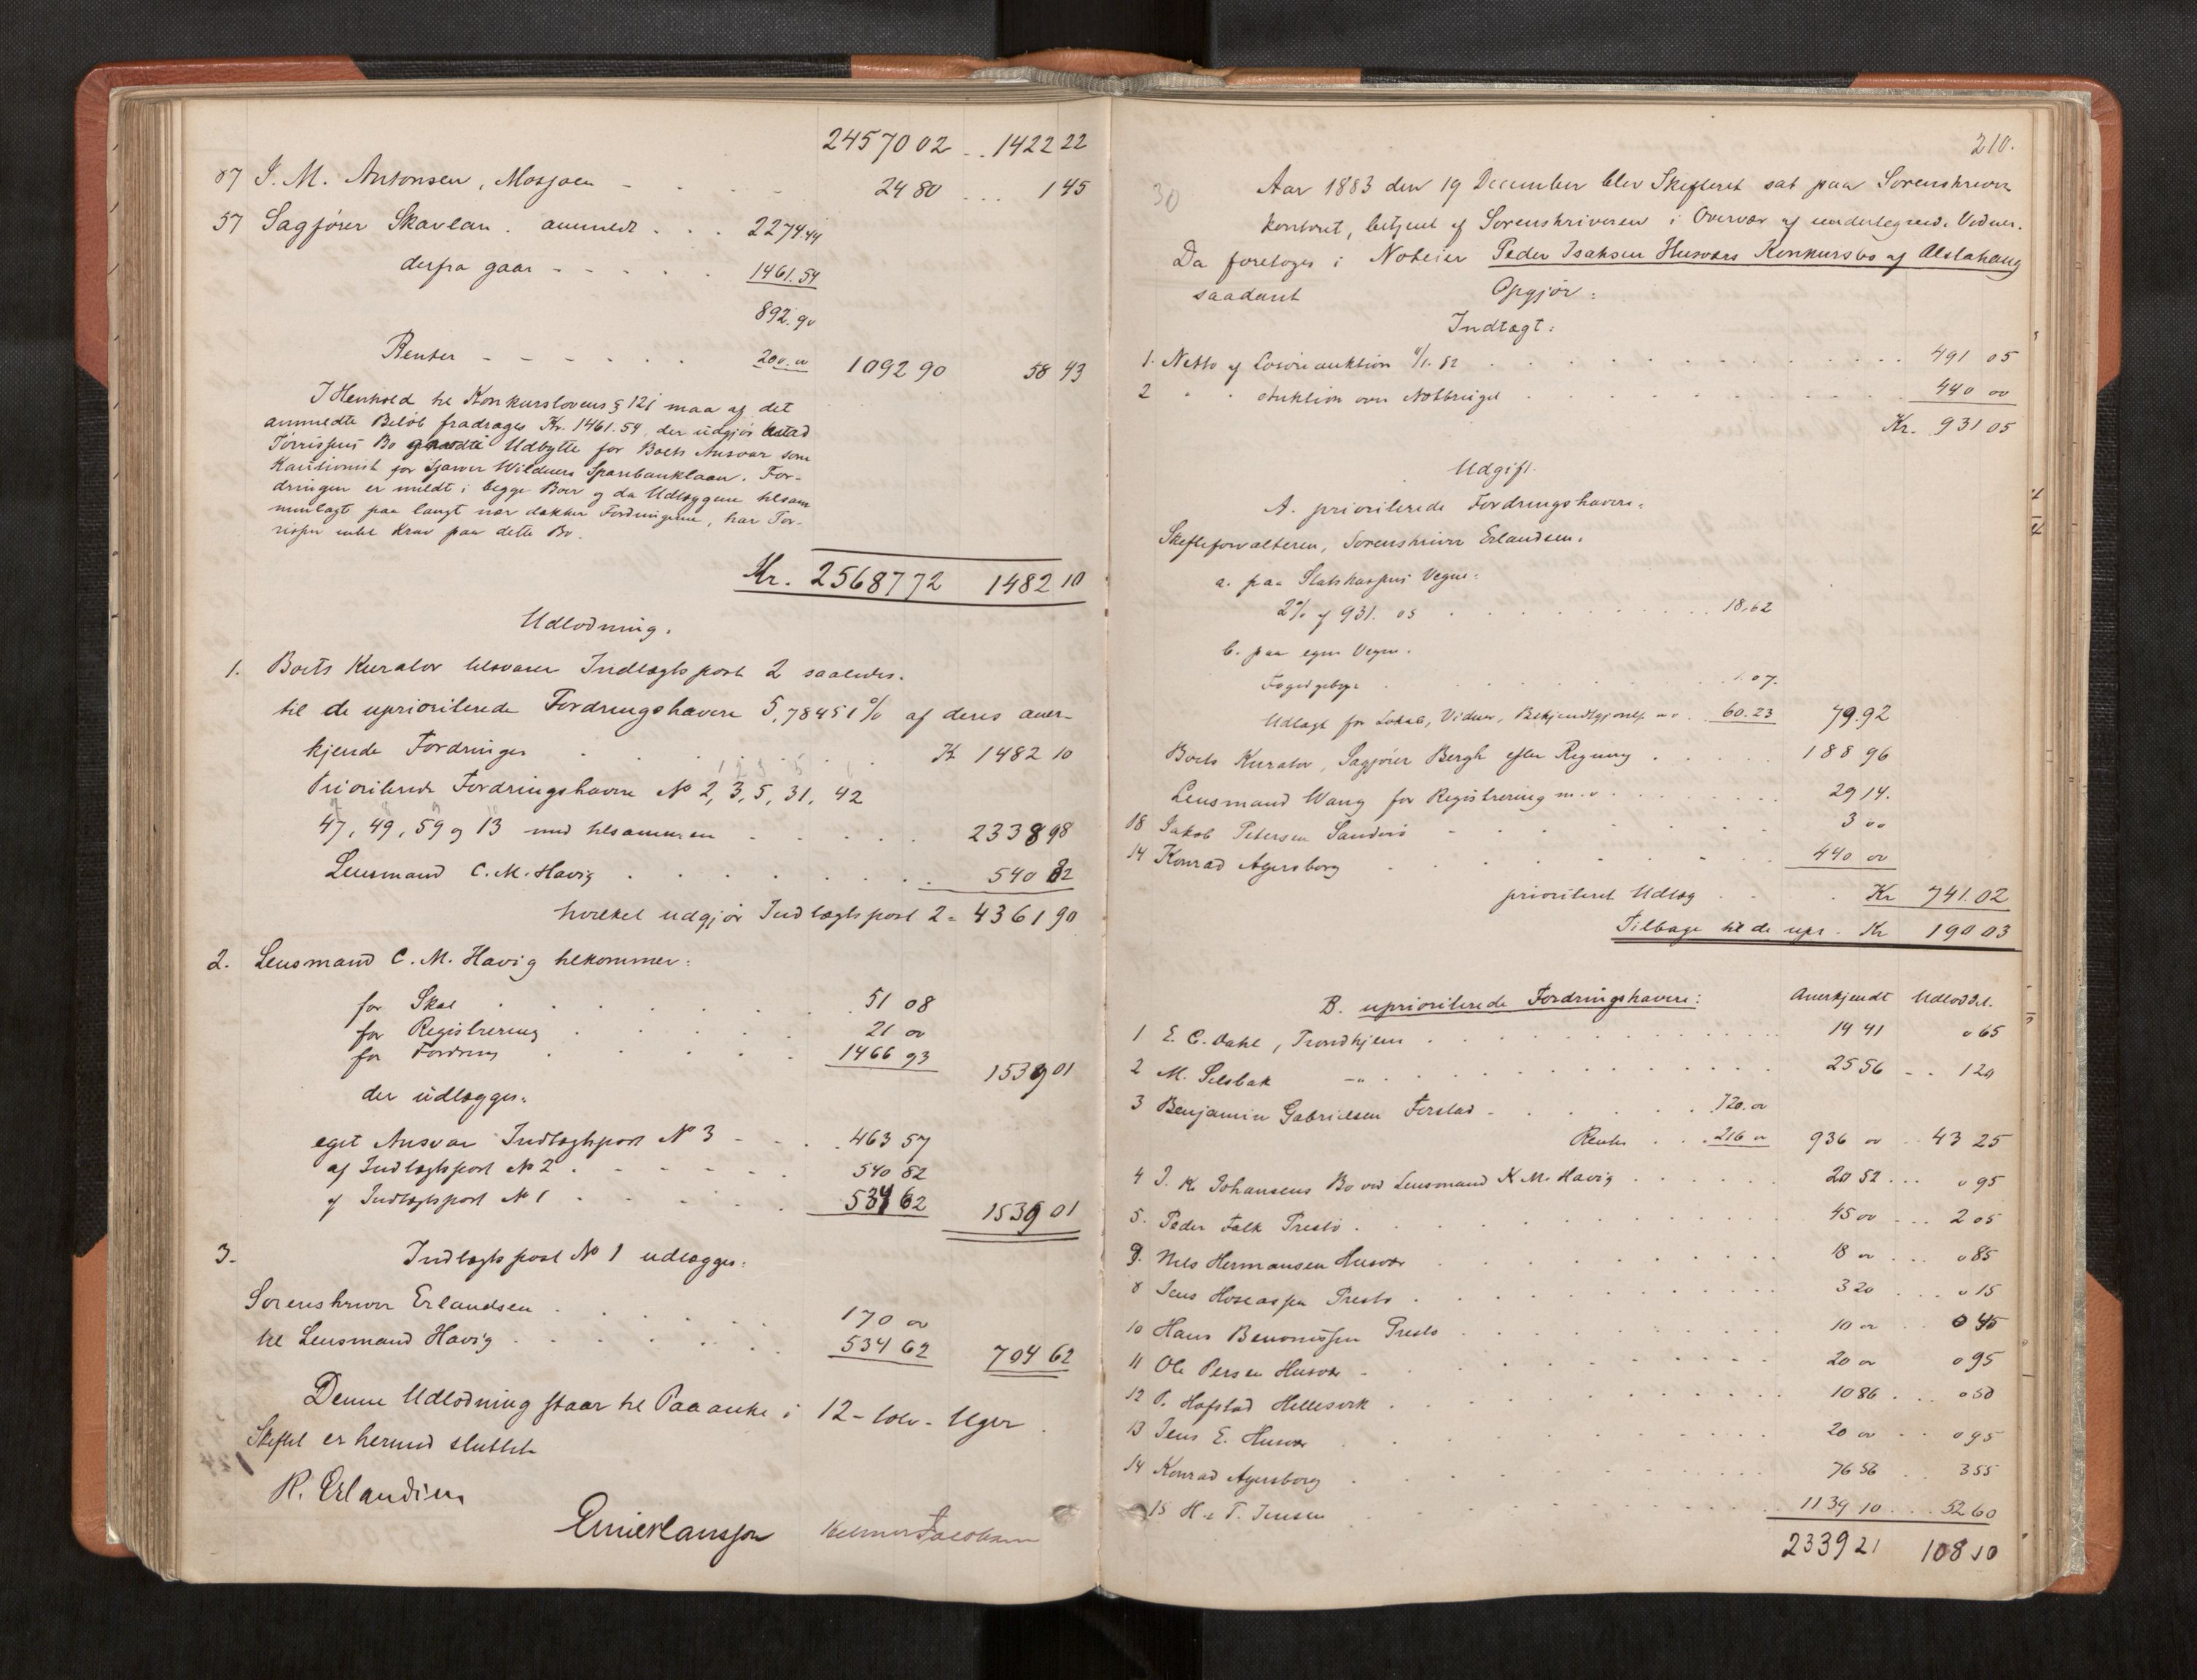 24570 02 .. 1422 22
87 J. M. Antonsen, Mosjøen - 24 80 ... 1 45
57 Sagfører Skavlan. anmeldt ... 2274 44
derfra gaar - - - 1461.54
892.90
Renter - - - 200.00 1092 90 58 43
I Henhold til Konkurslovens § 121 maa af det
anmeldte Beløb fradrages Kr. 1461.54, der udgjør
Bo Udbytte for Boets Ansvar som
Kautionist for Wildners Sparebanklaan. For-
dringen er meldt i begge Boer og da Udlæggene tilsam
menlagt paa langt nær dækker Fordringerne, har Tor-
rissen intet Krav paa dette Bo.
Kr. 25687 72 1482 10
Udlodning.
1. Boets Kurator tilsvarer Indtægtspost 2 saaledes.
til de uprioriterede Fordringshavere 5,78451 % af deres aner-
kjendte Fordringer Kr 1482 10
Prioriterede Fordringshavere No 2, 3, 5, 31, 42
47, 49, 59 og 13 med tilsammen 2338 98
Lensmand C. M. Havig 540 82
hvilket udgjør Indtægtspost 2 = 4361 90
2. Lensmand C. M. Havig tilkommer:
for Skat 51 08
for Registrering 21 00
for Fordring 1466 93
1539 01
der udlægges:
eget Ansvar Indtægtspost No 3 - 463 57
af Indtægtspost No 2 540 82
af Indtægtspost No 1 534 62 1539 01
3. Indtægtspost No 1 udlægges:
Sorenskriver Erlandsen 170 00
til Lensmand Havig 534 62 704 62
Denne Udlodning staar til Paaanke i 12 - tolv - Uger.
Skiftet er hermed sluttet
R. Erlandsen
Emil Hansson Jacobsen
210.
30 Aar 1883 den 19 December blev Skifteret sat paa Sorenskriver
kontoret, betjent af Sorenskriveren i Overvær af undertegnede Vidner.
Da foretoges i Noteier Peder Isaksen Husværs Konkursbo af Alstahaug
saadant Opgjør:
Indtægt:
1. Netto af Løsøreauktion /1. 82 491 05
2 " " Auktion over Notbruget 440 00
Kr. 931 05
Udgift.
A. prioriterede Fordringshavere:
Skifteforvalteren, Sorenskriver Erlandsen.
a. paa Statskassens Vegne:
2% af 931. 05 18,62
b. paa egne Vegne.
Fogedgebyr 1.07.
Udlagt for Lokale, Vidner, Bekjendtgjørelse m.v. 60.23 79.92
Boets Kurator, Sagfører Bergh efter Regning 188 96
Lensmand Wang for Registrering m.v. 29 14.
18 Jakob Petersen Sandvis 3 00
14 Konrad Agersborg 440 00
prioriteret Udlæg Kr 741.02
Tilbage til de upr. Kr 190 03
B. uprioriterede Fordringshavere: Anerkjendt Udloddet.
1 E. C. Dahl, Trondhjem 14 41 0 65
2 M. Selsbak -"- 25 56 1 20
3 Benjamin Gabrielsen Forstad - 720.00
Renter 216 00 936 00 43 25
4 J. K. Johansens Bo ved Lensmand K M. Havig 20 52 0 95
5. Peder Falk Prestø 45 00 2 05
9. Nils Hermansen Husvær 18 00 0 85
8 Jens Hoseassen Prestø 3 20 0 15
10 Hans Prestø 10 00 0 45
11 Ole Persen Husvær 20 00 0 95
12 P. Hofstad Hellesvik 10 86 0 50
13 Jens E. Husvær 20 00 0 95
14 Konrad Agersborg 76 56 3 55
15 H. & T. Jensen 1139 10 52 60
2339 21 108 10